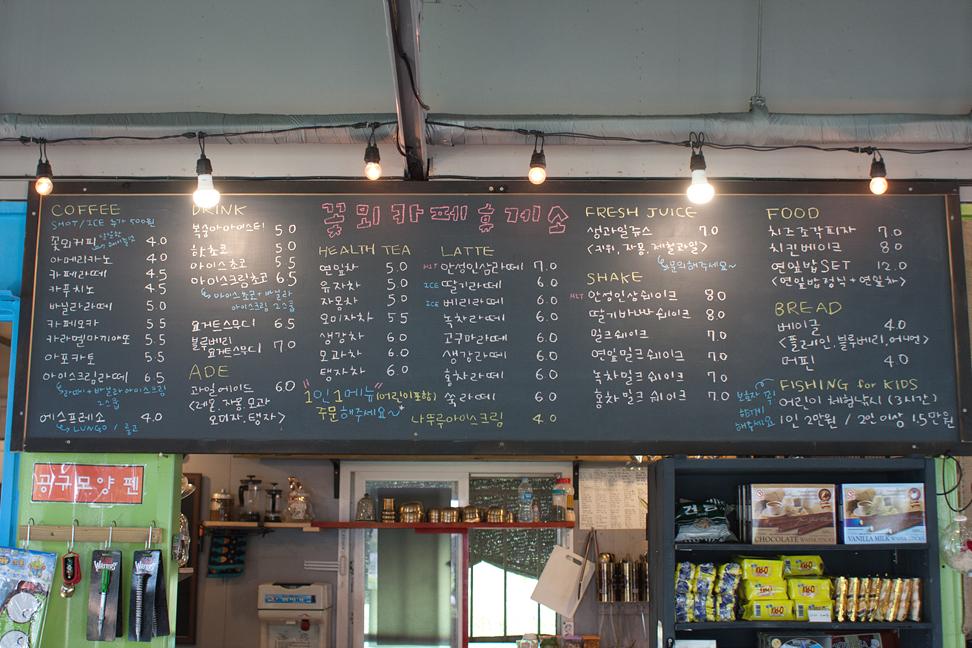 꽃뫼카페휴게소
COFFEE
SHOT/ICE 추가 500원
꽃뫼커피 4.0
아메리카노 4.0
카페라떼 4.5
카푸치노 4.5
바닐라라떼 5.0
카페모카 5.5
카라멜마끼아또 5.5
아포카토 5.5
아이스크림라떼 6.5
에스프레소 4.0
LUNGO / 룽고
DRINK
복숭아아이스티 5.0
핫초코 5.0
아이스초코 5.5
아이스크림초코 6.5
아이스초코+바닐라
아이스크림 2스쿱
요거트스무디 6.5
블루베리
요거트스무디 7.0
ADE
과일에이드 6.0
<레몬, 자몽, 모과
오미자, 탱자>
HEALTH TEA
연잎차 5.0
유자차 5.0
자몽차 5.0
오미자차 5.5
생강차 6.0
모과차 6.0
탱자차 6.0
"1인 1메뉴" (어린이포함)
주문해주세요~*
LATTE
HOT 안성인삼라떼 7.0
ICE 딸기라떼 6.0
ICE 베리라떼 6.0
녹차라떼 6.0
고구마라떼 6.0
생강라떼 6.0
홍차라떼 6.0
쑥라떼 6.0
나뚜루아이스크림 4.0
FRESH JUICE
생과일쥬스 7.0
<키위, 자몽, 제철과일>
문의해주세요~
SHAKE
HOT 안성인삼쉐이크 8.0
딸기바나나쉐이크 8.0
밀크쉐이크 7.0
연잎밀크쉐이크 7.0
녹차밀크쉐이크 7.0
홍차밀크쉐이크 7.0
FOOD
치즈조각피자 7.0
치킨베이크 8.0
연잎밥SET 12.0
<연잎밥정식+연잎차>
BREAD
베이글 4.0
<플레인, 블루베리, 어니언>
머핀 4.0
FISHING for KIDS
보호자 꼭
함께
해주세요
어린이 체험낚시 (3시간)
1인 2만원 / 2인이상 1.5만원
광구모양 펜
CHOCOLATE
VANILLA MILK